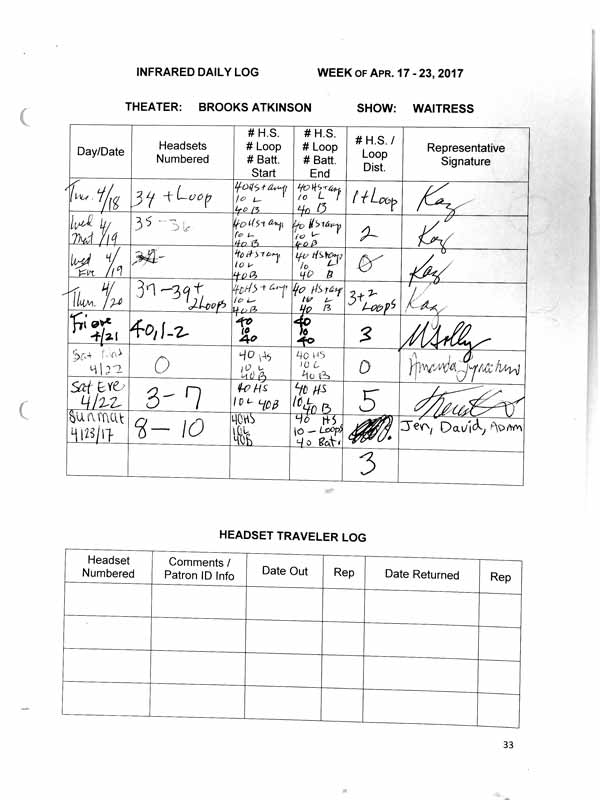 INFRARED DAILY LOG WEEK OF APR. 17 - 23, 2017
THEATER: BROOKS ATKINSON SHOW: WAITRESS
Day/Date
Headsets
Numbered
# H.S.
# Loop
# Batt.
Start
# H.S.
# Loop
# Batt.
End
# H.S. /
Loop
Dist.
Representative
Signature
Tues. 4/18
34 + Loop
40 HS + amp
10 L
40 B
40 HS + amp
10 L
40 B
1 + Loop
Kay
Wed 4/
Mat /19
35 - 36
40 HS + amp
10 L
40 B
40 HS + amp
10 L
40 B
2
Kay
Wed 4/
Eve /19
40 HS + amp
10 L
40 B
40 HS + amp
10 L
40 B
0
Kay
Thur. 4/20
37 - 39 +
2 Loops
40 HS + amp
10 L
40 B
40 HS + amp
10 L
40 B
3 + 2
Loops
Kay
Fri eve
4/21
40, 1-2
40
10
40
40
10
40
3
Sat
4/22
0
40 HS
10 L
40 B
40 HS
10 L
40 B
0
Amanda
Sat Eve
4/22
3 - 7
40 HS
10 L 40B
40 HS
10 L
40 B
5
Sun mat
4/23/17
8 - 10
40HS
10L
40B
40 HS
10 - Loops
40 Bat.
Jen, David, ADAM
3
HEADSET TRAVELER LOG
Headset
Numbered
Comments /
Patron ID Info
Date Out
Rep
Date Returned
Rep
33